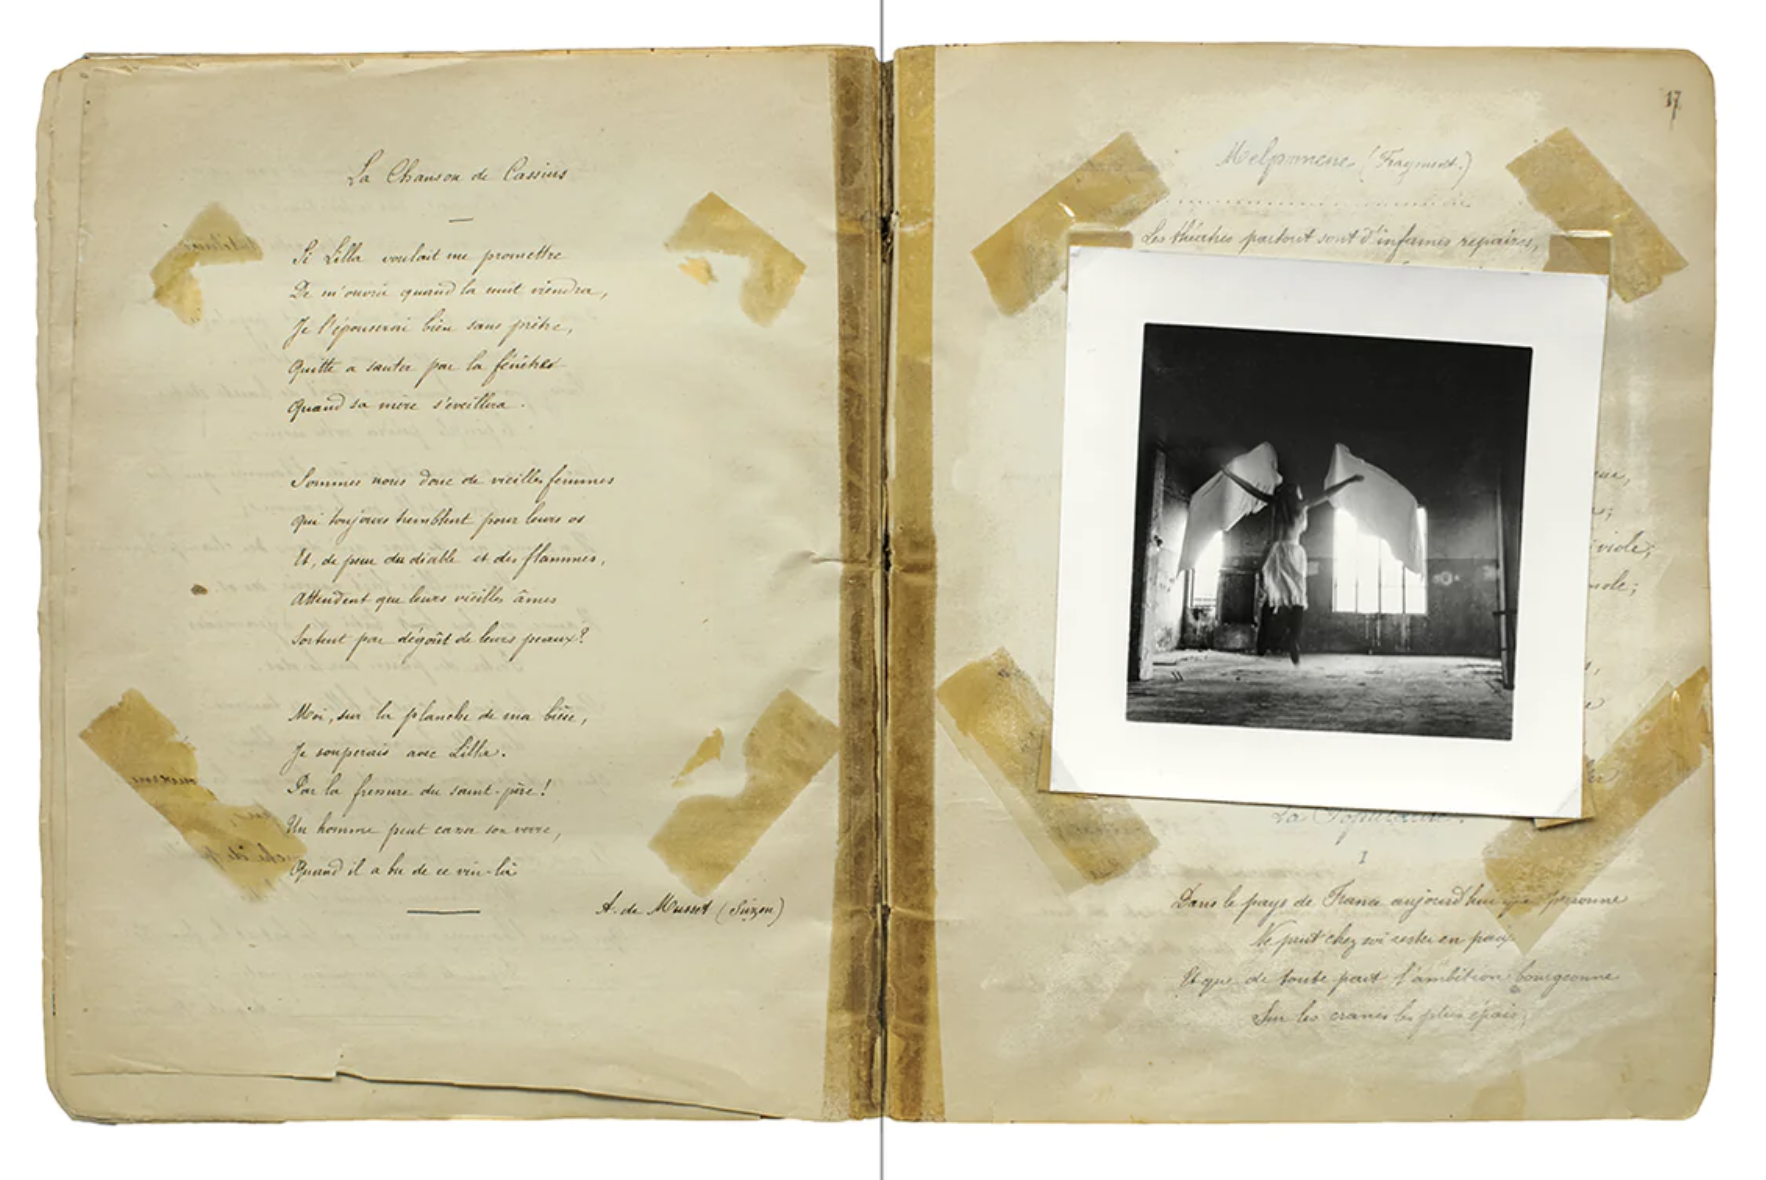 La Chanson de Cassius
Si Lilla voulait me promettre
De m'ouvrir quand la nuit viendra,
Je l'épouserai bien sans prêtre,
Quitte a sauter par la fenêtre
Quand sa mère s'éveillera.
Sommes nous donc de vieilles femmes
qui toujours tremblent pour leurs os
Et, de peur du diable et des flammes,
Attendent que leurs vieilles âmes
Sortent par dégoût de leurs peaux?
Moi, sur la planche de ma bière,
Je souperais avec Lilla.
Par la fressure du saint-père!
Un homme peut casser son verre,
Quand il a bu de ce vin-là
A. de Musset (Suzon)
17
Melpomene (Fragment.)
Les théâtres partout sont d'infames repaires,
viole;
La Popularité.
I
Dans le pays de France aujourd'hui que personne
Ne peut chez soi rester en paix
Et que de toute part l'ambition bourgeonne
Sur les cranes les plus épais,